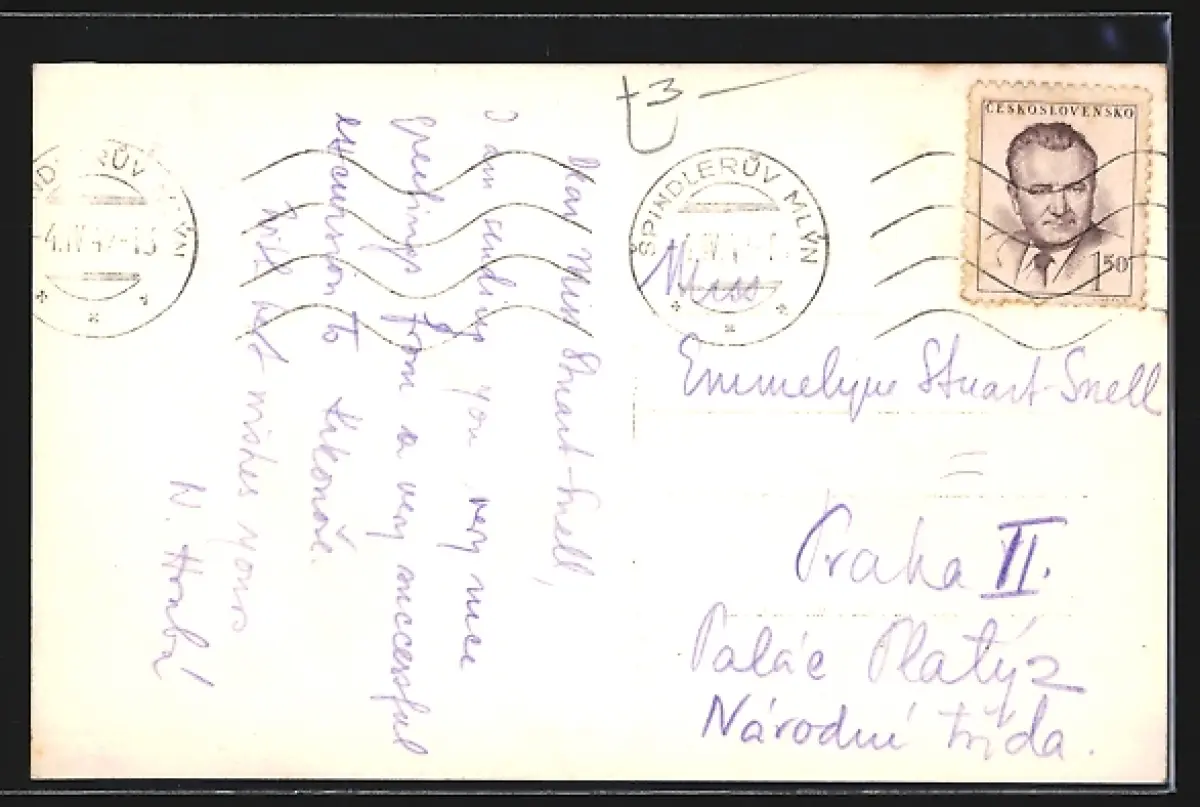 t3 —
ČESKOSLOVENSKO
1 50
ŠPINDLERŮV MLÝN
ŮV
Dear Miss Stuart-Snell,
I am sending you very nice
greetings from a very successful
excursion to Krkonoše.
With best wishes yours
N.
Miss
Emmelyne Stuart-Snell
Praha II.
Palác Platýz
Národní třída.